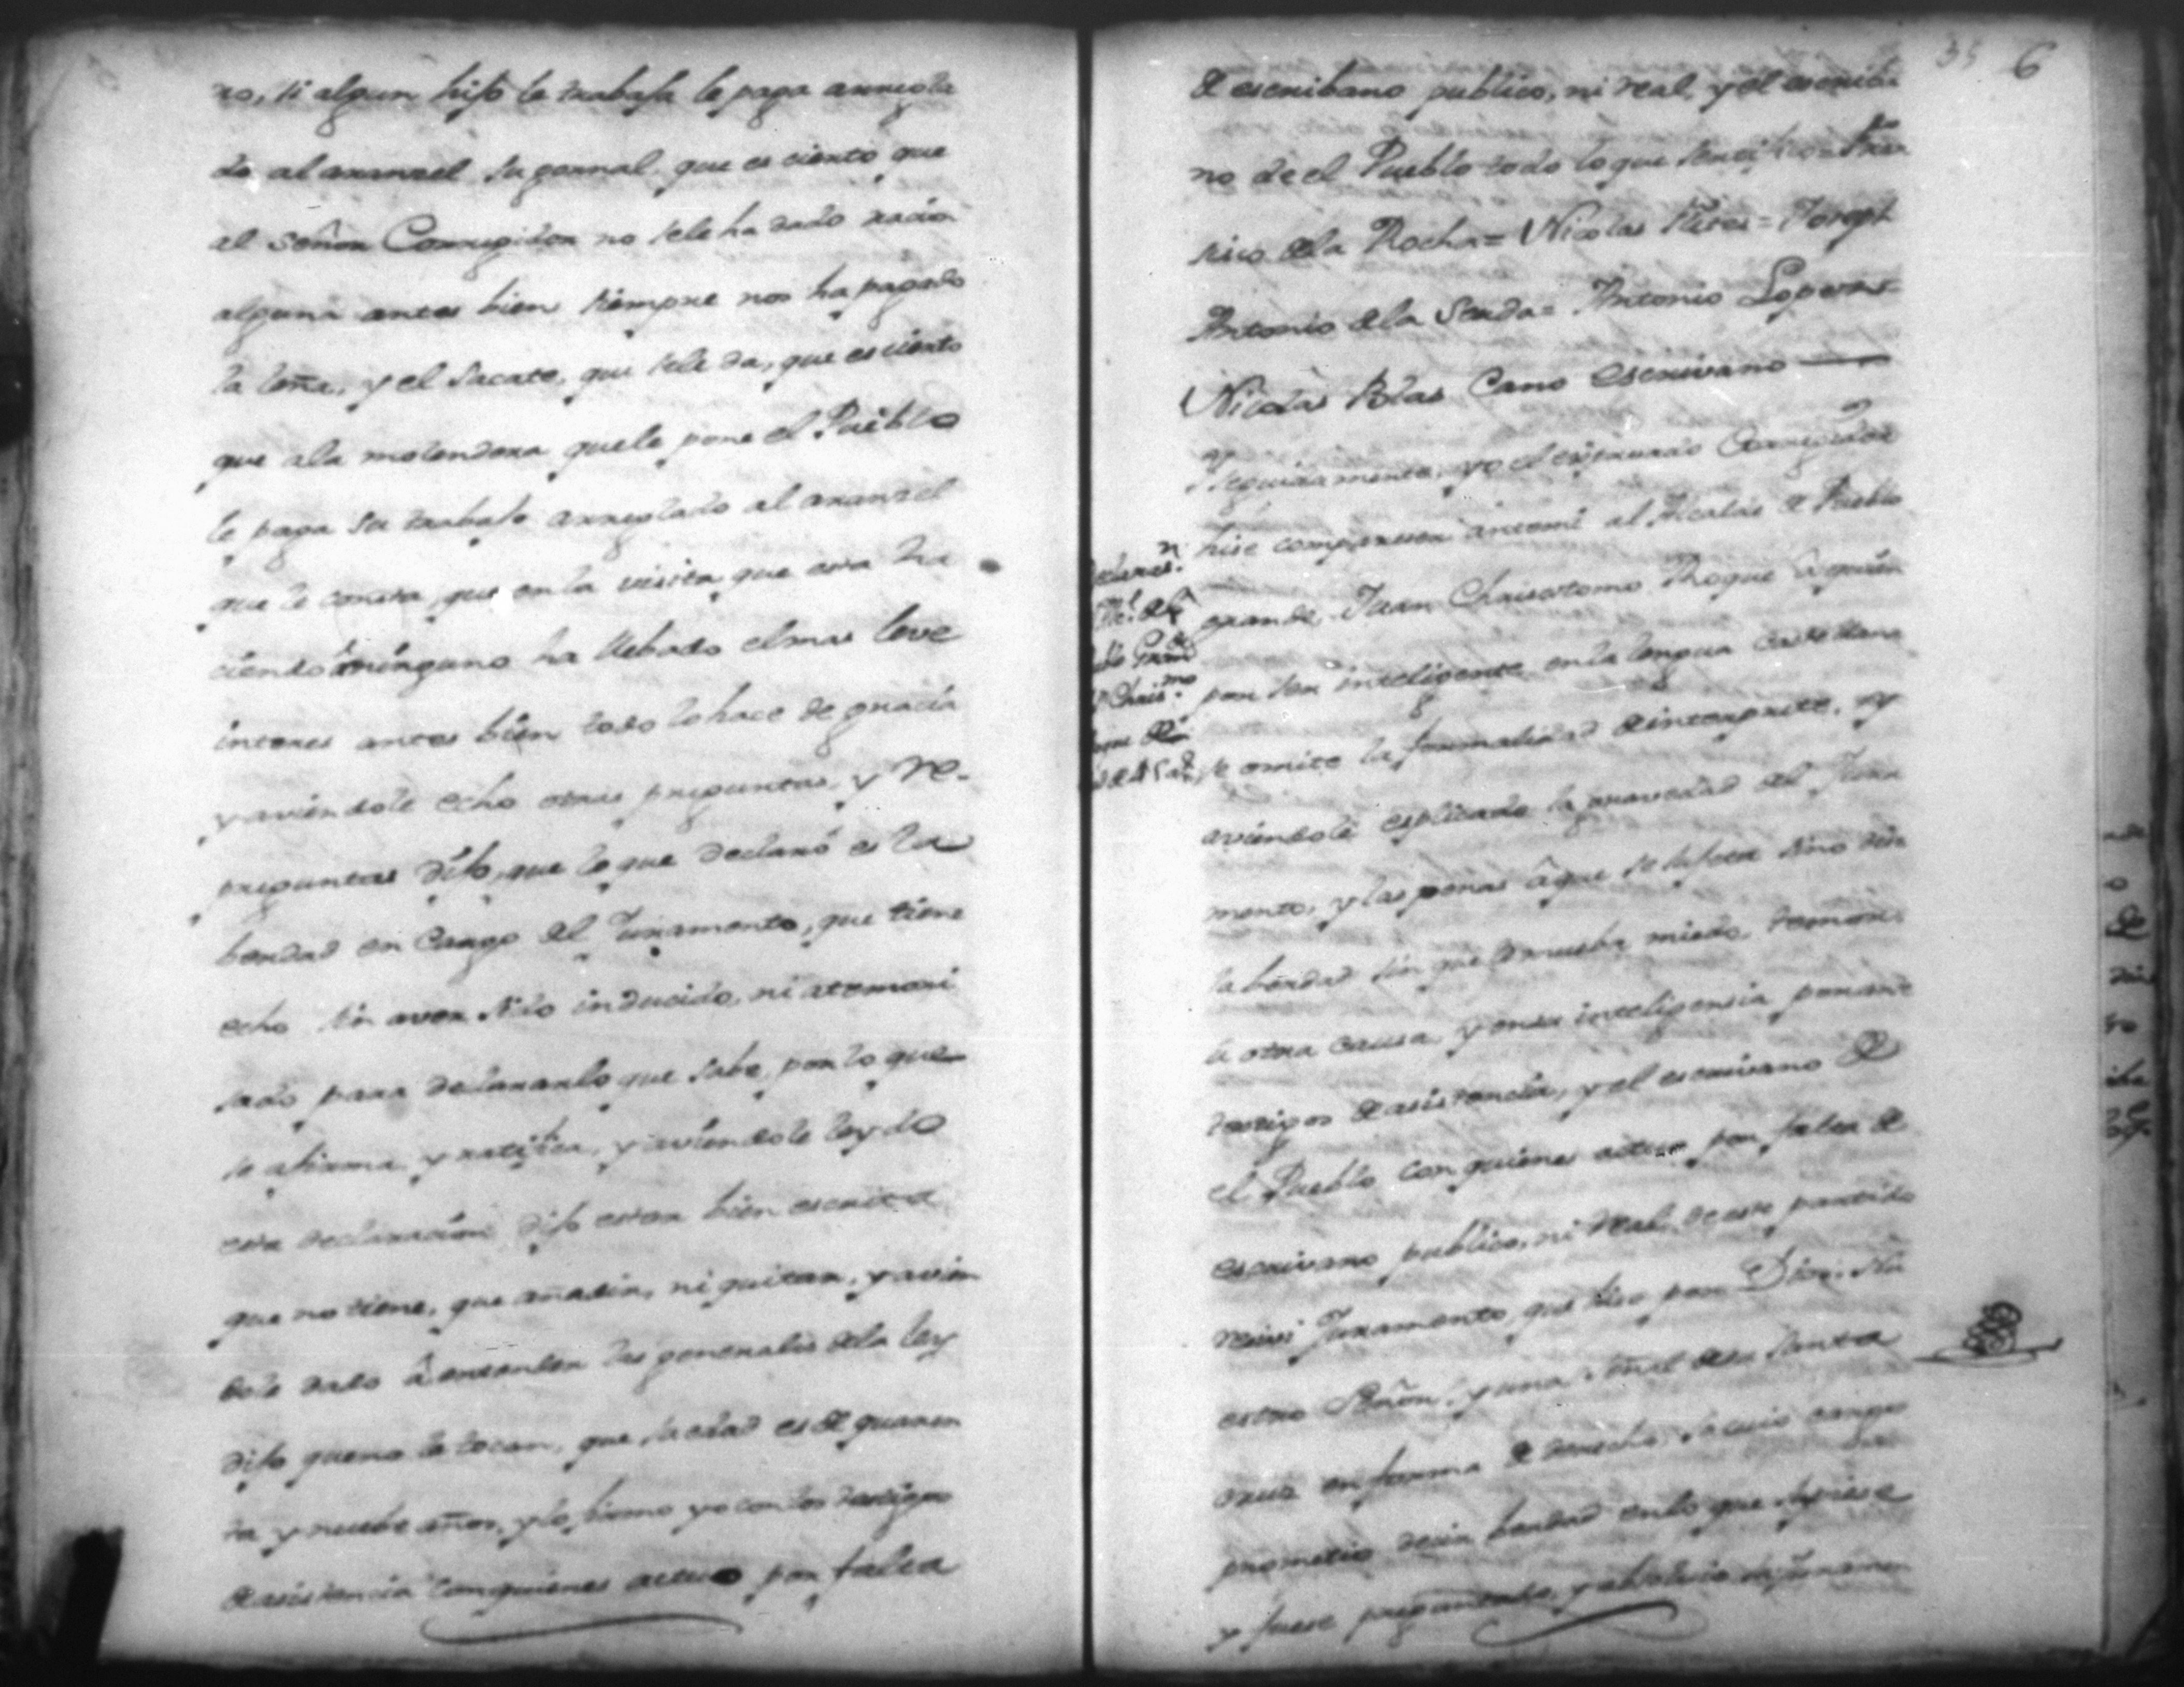 no, si algun hijo le trabaja le paga arregla
do al aransel su jornal, que es cierto que
al Señor Corregidor no sele ha dado racion
alguna antes bien siempre nos ha pagado
la leña, y el sacate, que sele da, que es cierto
que ala molendera quele pone el Pueblo
le paga su trabajo arreglado al aransel
que le consta, que en la visita que esta ha
ciendo âninguno ha llebado elmas leve
interes antes bien todo lo hace de gracia
y aviendole echo otras preguntas, y re-
preguntas dijo, que lo que declaró es la
berdad en Cargo del Juramento, que tiene
echo sin aver sido inducido, ni atemori
sado para declararlo que sabe, por lo que
se afirma, y ratifica, y aviendole leydo
esta declaracion dijo estar bien escrita
que no tiene, que añadir, ni quitar, y avien
dole dado â entender las generales dela ley
dijo queno le tocan, que su edad es de quaren
ta y nuebe años, y lo firmo yo con los testigos
de asistencia con quienes actuo por falta
35 6
de escribano publico, ni real, y el escriba
no de el Pueblo todo lo que sertifico = Fran
sisco dela Rocha = Nicolas = Joseph
Antonio dela Serda = Antonio
Nicolas Blas Cano escrivano
Seguidamente, yo el espresado Corregidor
hise compareser antemi al Alcalde de Pueblo
grande, Juan Chrisostomo Roque â quien
por ser inteligente en la lengua castellana
se omite la formalidad de interprete, y
aviendole esplicado la gravedad del Jura
mento, y las penas âque se sujeta sino dise
la berdad sin que lo mueba miedo, temor,
u otra causa, y en su inteligensia por ante
testigos de asistencia, y el escrivano de
el Pueblo con quienes actuo por falta de
escrivano publico, ni Real de este partido
resivi Juramento, que hiso por Dios Nu
estro Señor, y una señal de su Santa
crus en forma de derecho, so cuio cargo
prometio desir berdad en lo que supiese
y fuese preguntado, y absolvio